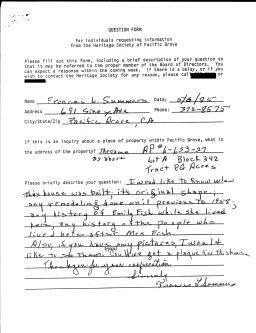 QUESTION FORM
For individuals requesting information
from the Heritage Society of Pacific Grove
Please fill out this form, including a brief description of your question so
that it may be referred to the proper member of the Board of Directors. You
can expect a response within the coming week. If there is a delay, or if you
wish to contact the Heritage Society for any reason, please call
or
Name Frances L. Summers Date:
Address 691 Sinex Ave Phone: 372-8575
City/State/Zip Pacific Grove, CA
If this is an inquiry about a piece of property within Pacific Grove, what is
the address of the property? The same AP #6-653-27
as above Lot A Block 342
Tract PG Acres
Please briefly describe your question: I would like to know when
this house was built, its original shape,
any remodeling done until previous to 1958,
any history of Emily Fish while she lived
here, any history of the people who
lived here after Mrs. Fish.
Also, if you have any pictures, I would
like to see them. Could we get a plaque for this house
Thank you for your cooperation
Sincerely
Frances L Summers